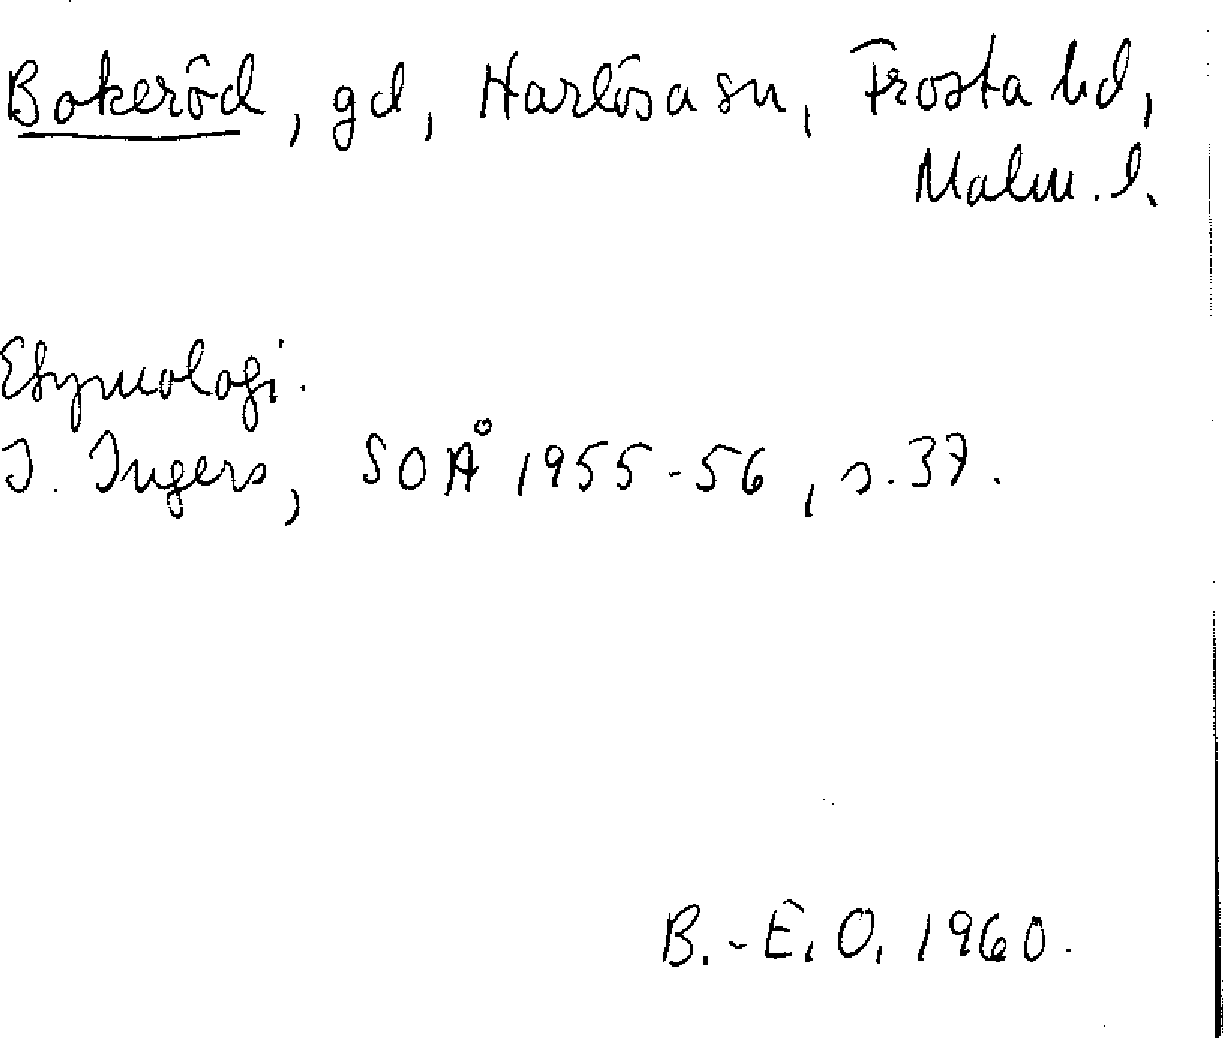 Bokeröd, gd, Harlösa sn, Frosta hd,
Malm. l.
Etymologi.
I. Ingers, SOÅ 1955-56, s. 37.
B.-E. O. 1960.